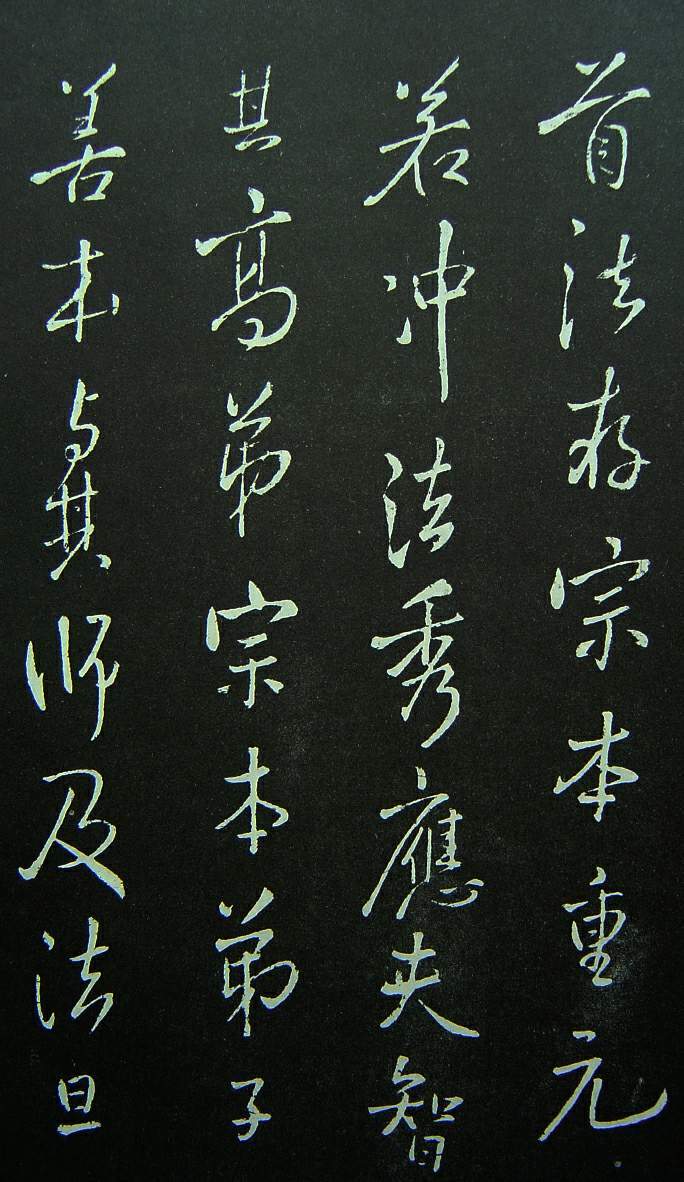 首法存宗本重元
若冲法秀應夫智
其高弟宗本弟子
善本与其师及法
旦